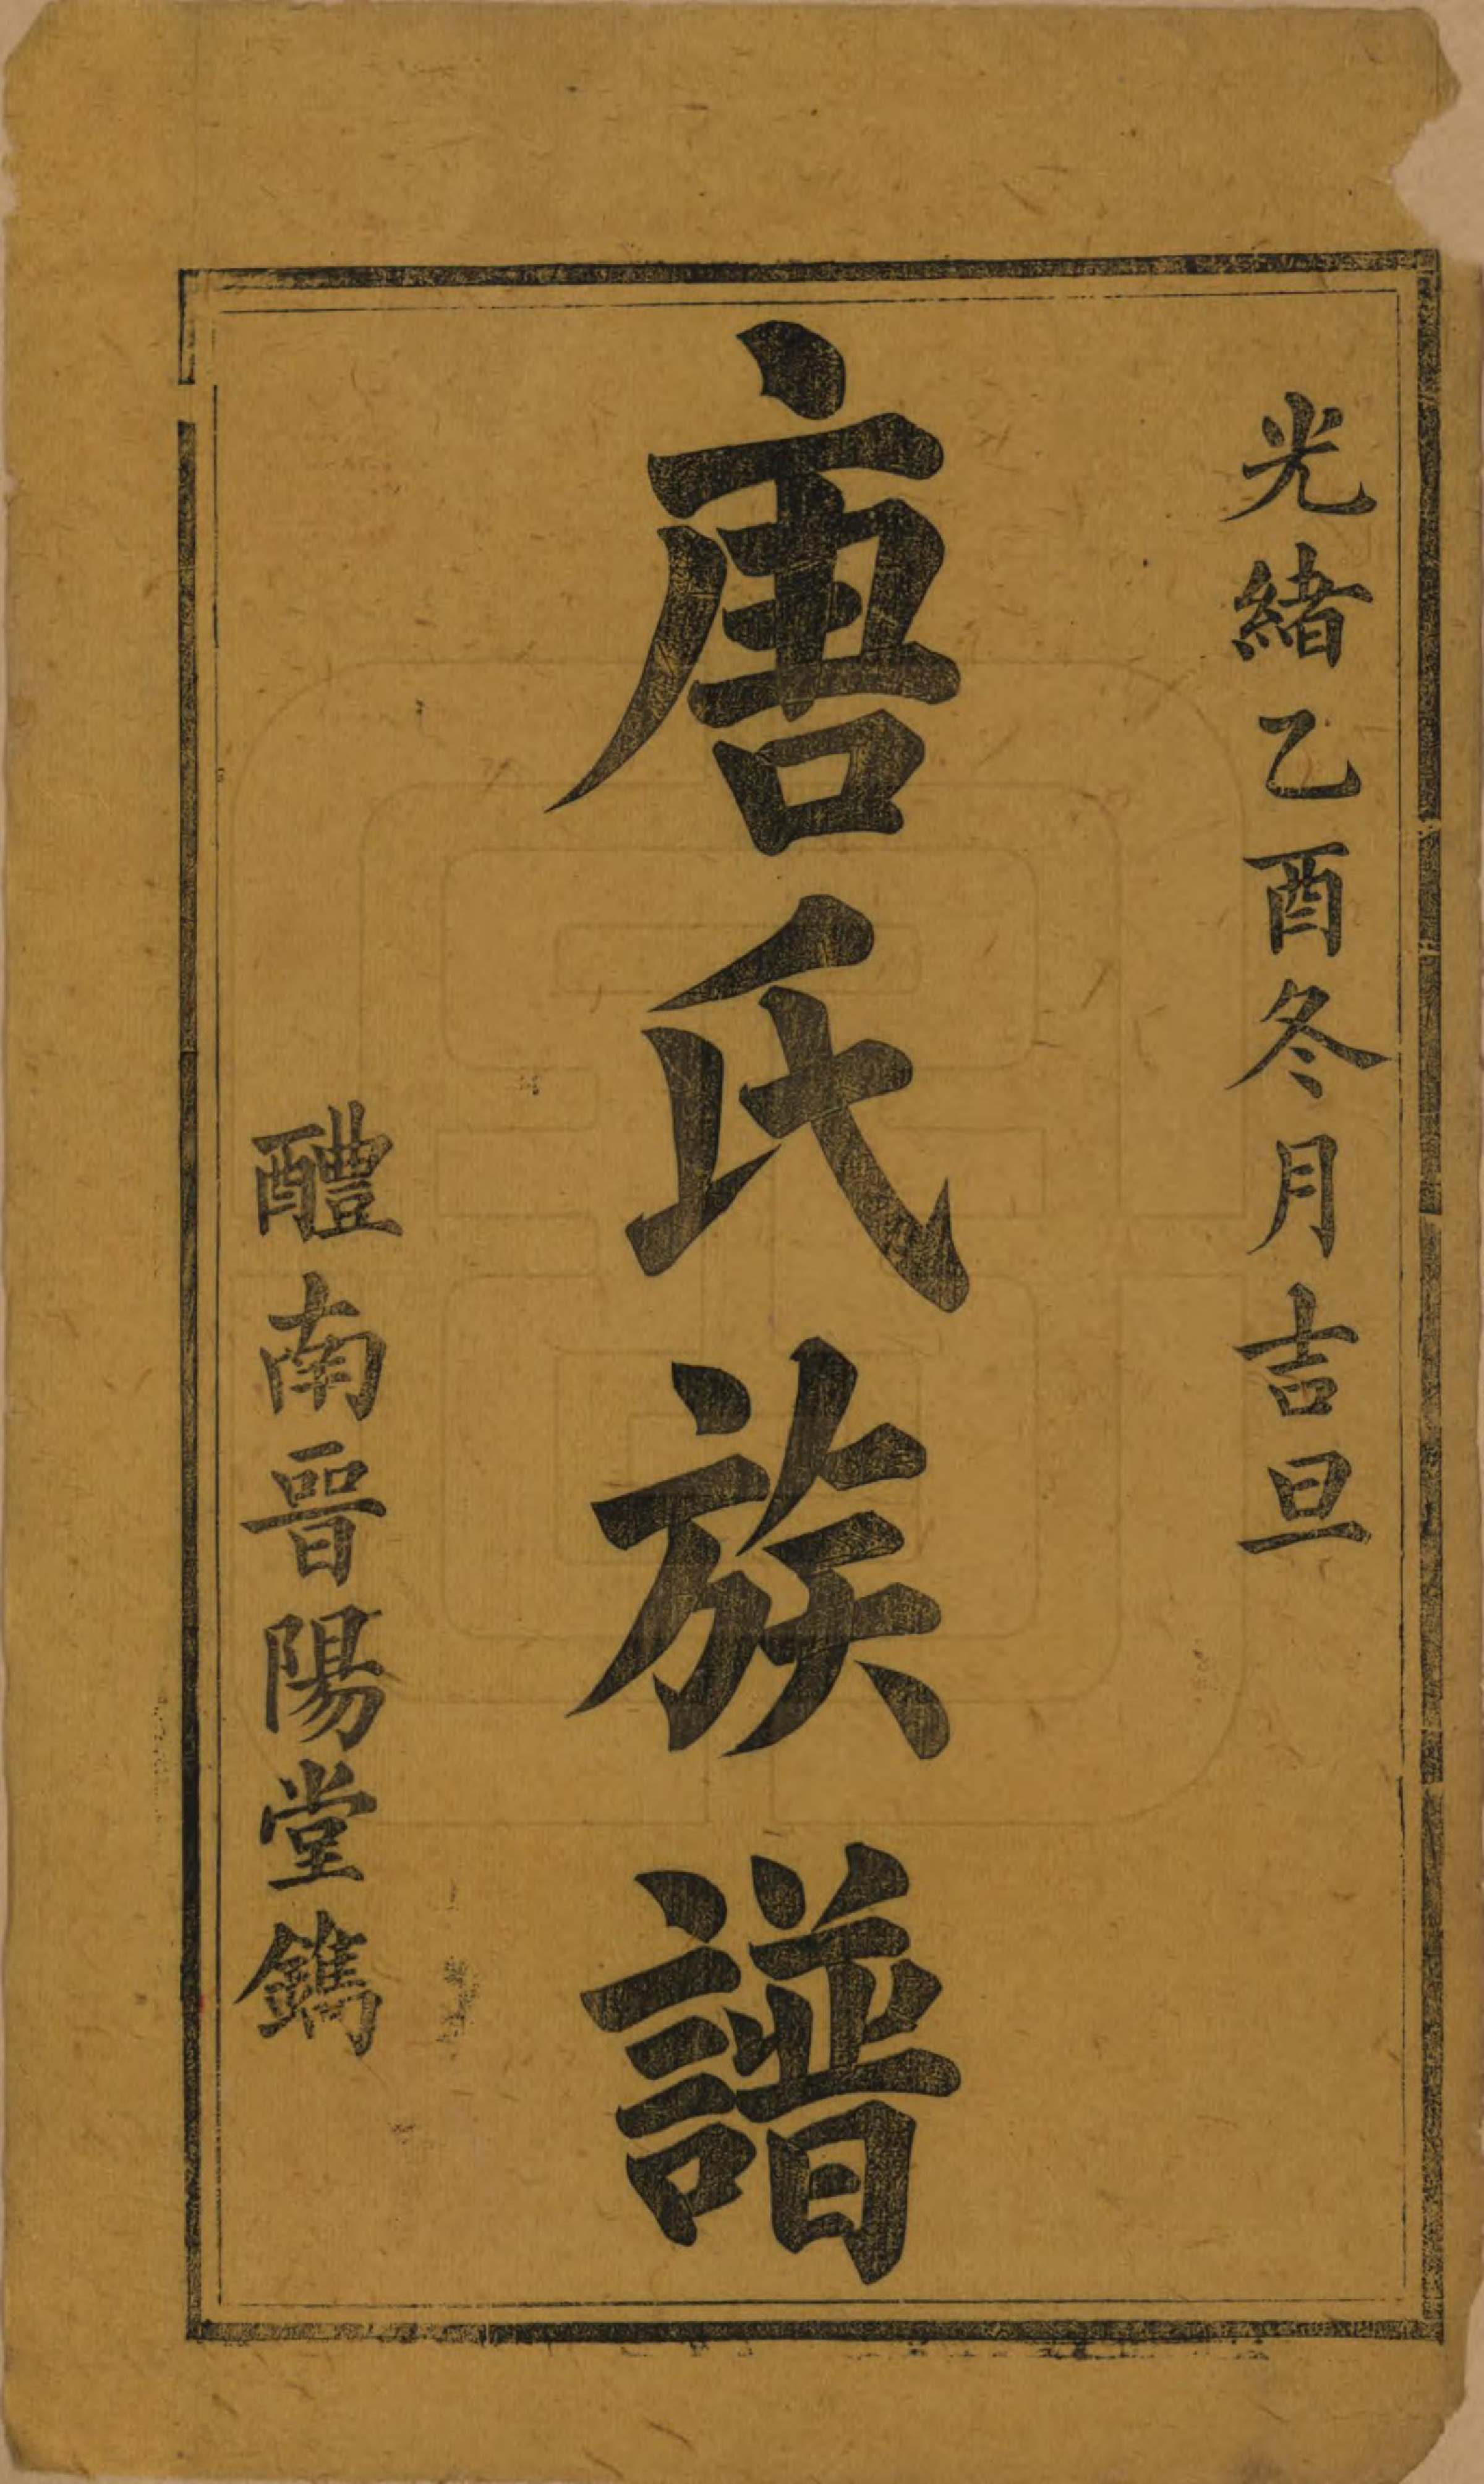 光緒乙酉冬月吉旦
唐氏族譜
醴南晉陽堂鐫